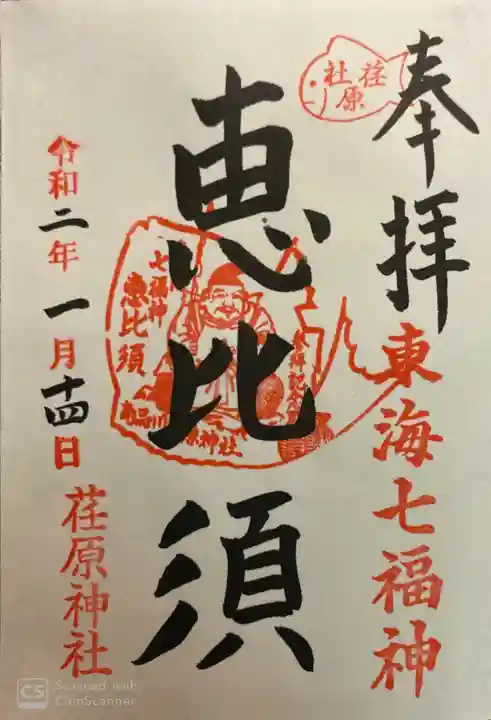 奉拝
東海七福神
荏原
社
恵比須
七福神
恵比須
品川
神社
参拝記念
令和二年一月十四日
荏原神社
CS Scanned with
CamScanner